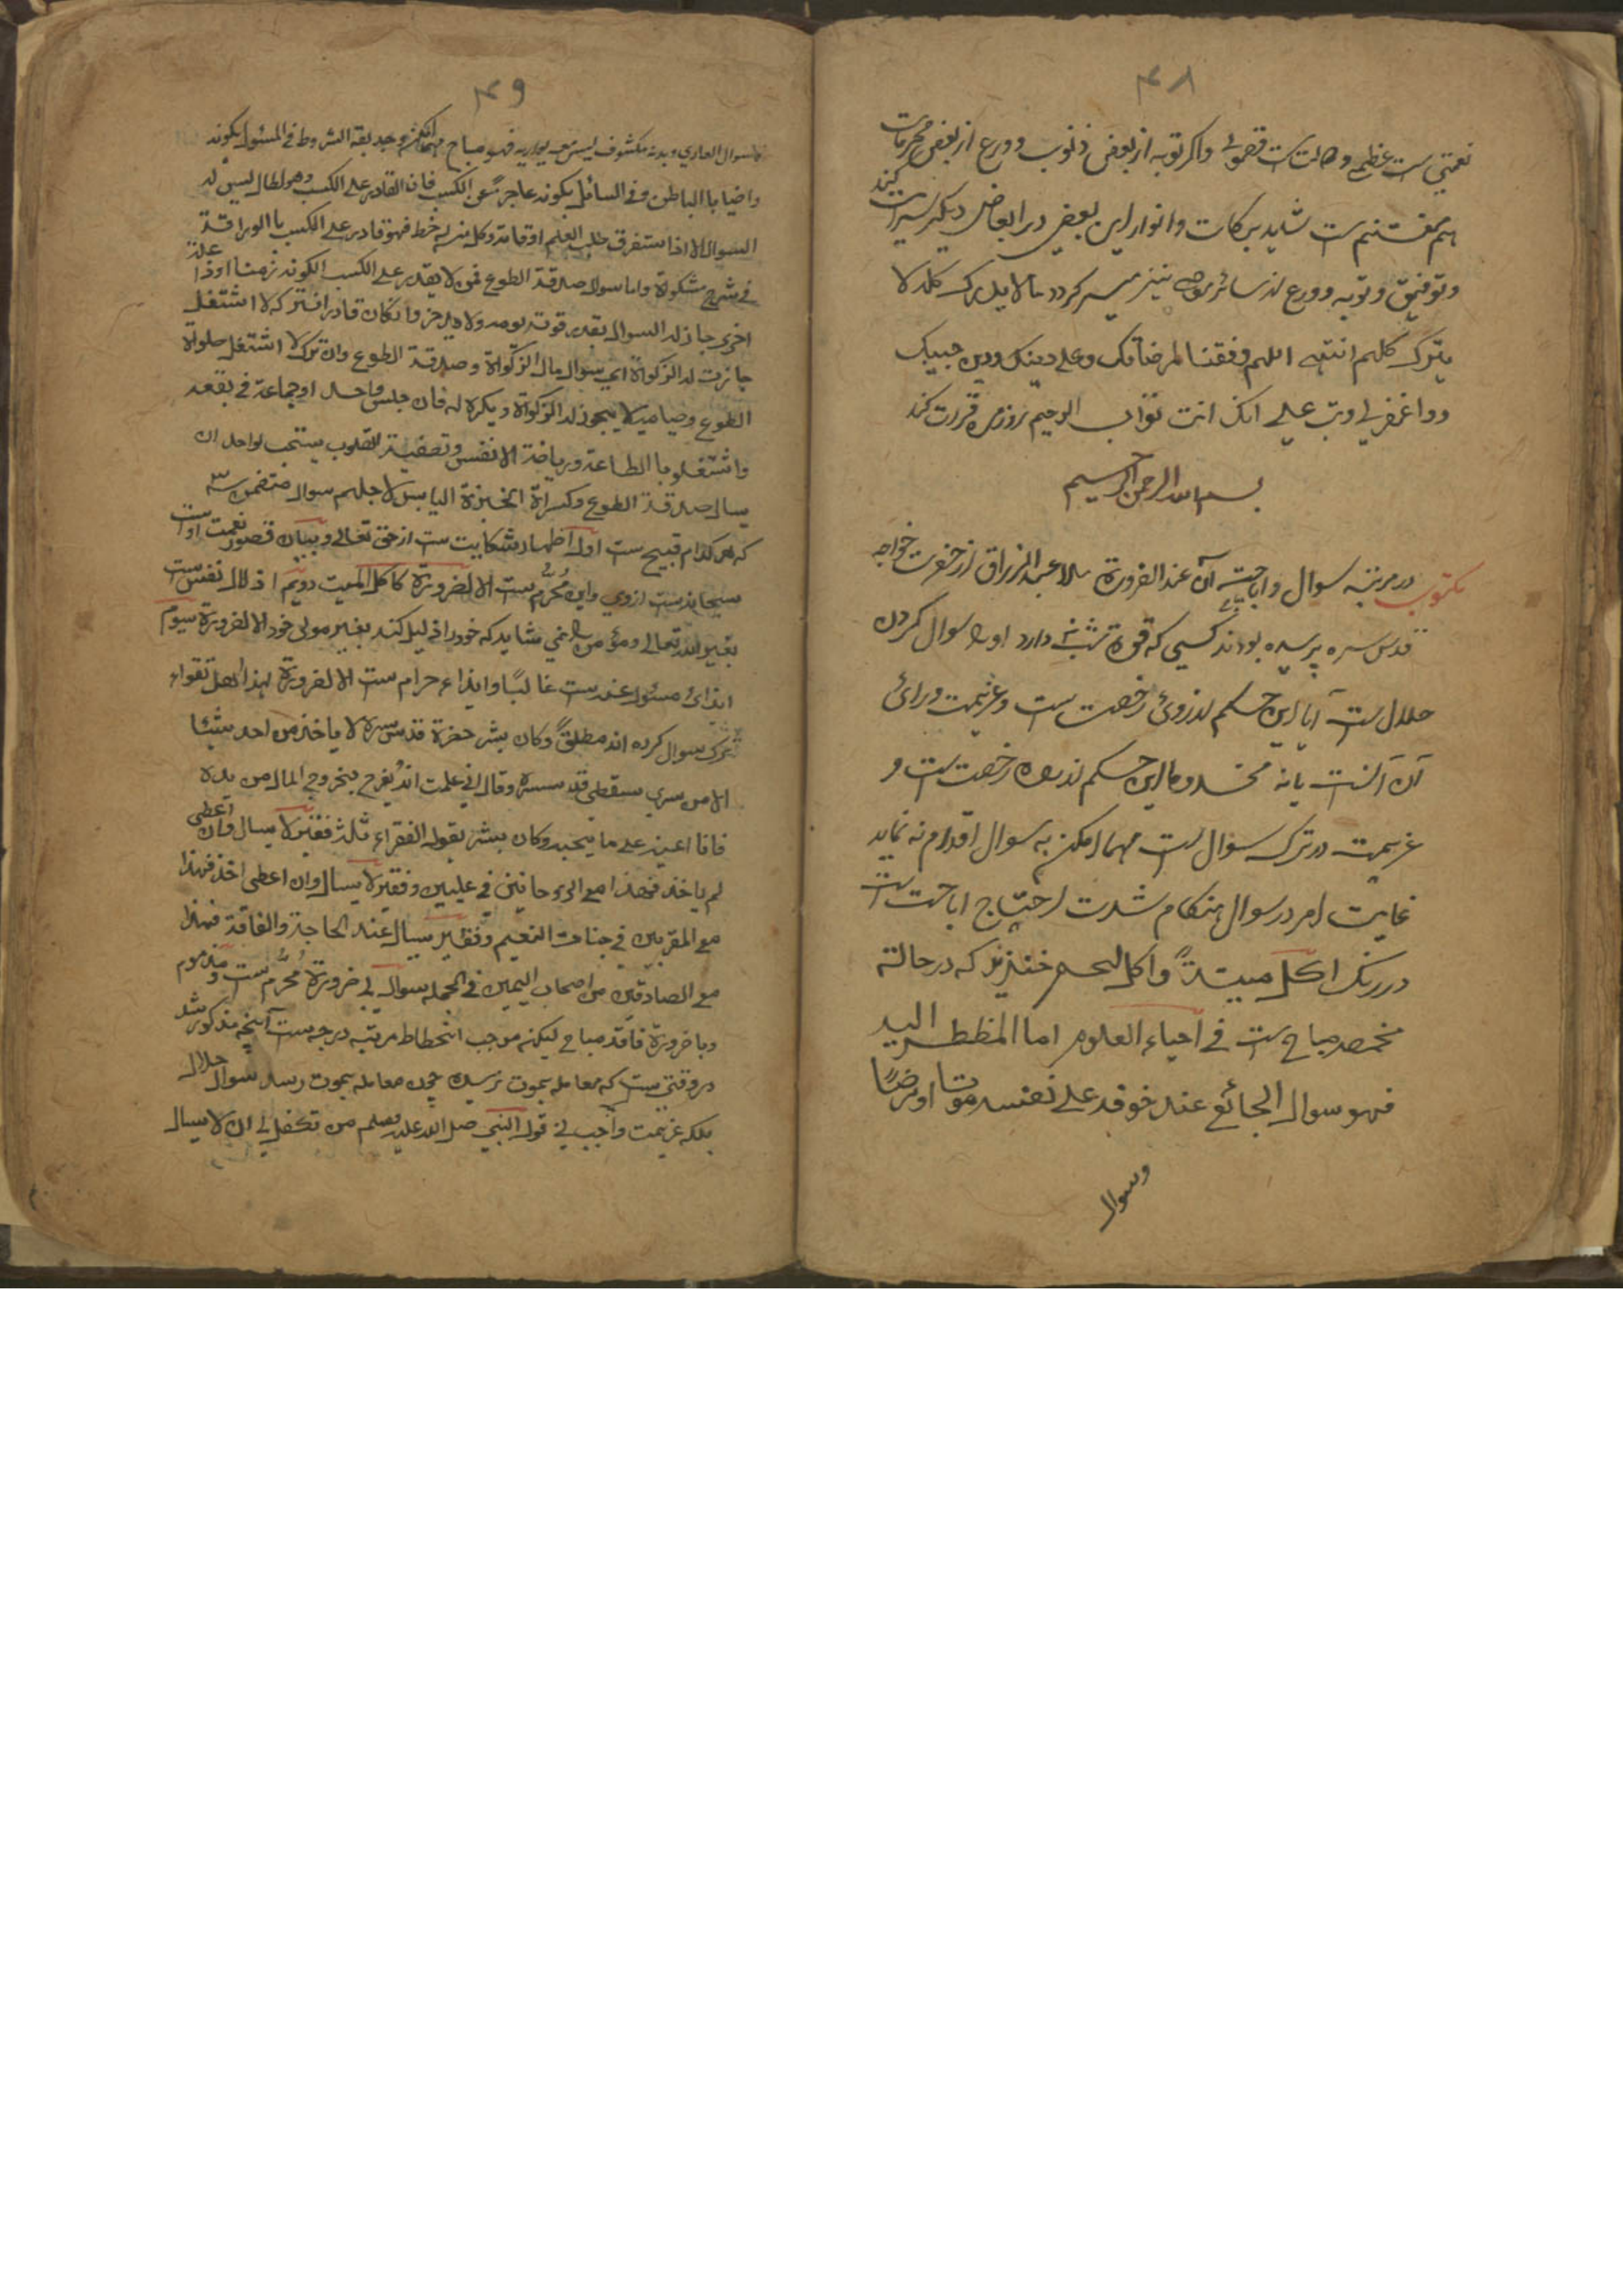 ۴۸
نعمتی ست عظیم و دولت ست قصوی و اگر توبه از بعض ذنوب و ورع از بعض محرمات
هم مغتنم ست شاید برکات و انوار این بعض در ابعاض دیگر سرایت کند
و توفیق و توبه و ورع از سائر نواحی نیز میسر گردد ما لا یدرک کله لا
یترک کلهم انتهی اللهم وفقنا لمرضاتک وعلی دینک ودین حبیبک
واغفر لی وتب علی انک انت تواب الرحیم
بسم الله الرحمن الرحیم
مکتوب در مرتبه سوال و اباحت آن عند الضرورة ملا عبد الرزاق از حضرت خواجه
قدس سره پرسیده بودند کسی که قوة شب دارد او را سوال کردن
حلال ست آیا این حکم از روئ رخصت ست و عزیمت ورائ
آن آنست یا نه مخدوما این حکم از راه رخصت ست و
عزیمت در ترک سوال ست مهما امکن به سوال اقدام نه نماید
غایت امر در سوال هنکام شدت احتیاج اباحت ست
در رنک اکل میتةً و اکل لحم خنزیر که در حالته
مخمصه مباح ست فی احیاء العلوم اما المظطر الیه
فهو سوال الجائع عند خوفه علی نفسه موتا او مرضًا
وسوال
۴۹
سوال العاری وبدنه مکشوف لیس معه یواریه فهو مباح مهما امکن وجد بقة الشروط فی المسئول بکونه
واضیا باالباطن وفی السائل بکونه عاجزًا عن الکسب فان القادر علی الکسب وهو بطال لیس له
السوال الا اذا استغرق طلب العلم اوقاته وکل من له خط فهو قادر علی الکسب باالوراقة
فی شرح مشکوة واما سوال صدقة الطوع فمن لا یقدر علی الکسب لکونه زمنا او ذا علة
اخری جاز له السوال بقدر قوت یومه ولا یدخر وانکان قادرا فترکه لا اشتغال
جازت له الزکواة ای سوال مال الزکواة وصدقة الطوع وان ترک لا اشتغال صلواة
الطوع وصیامه لا یجوز له الزکواة ویکره له فان جلس واحد او جماعة فی بقعه
واشتغلوا باالطاعة وریاضة الانفس وتصفیة القلوب یستحب لواحد ان
یسال صدقة الطوع وکسراة الخبزة الیابس لا جلهم سوال متضمن سه
که هر کدام قبیح ست اول اظهار شکایت ست از حق تعالی و بیان قصور نعمت اوست
سبحانه ست ازوی واین مُحرَّم ست الا لضرورة کاکل المیت دویم اذلال نفس ست
بغیر الله تعالی و مؤمن را نمی شاید که خود را ذلیل کند بغیر مولی خود الا لضرورة سیوم
ایذائ مسئول عنه ست غالبًا وایذاء حرام ست الا لضرورة لهذا اهل تقواء
ترک سوال کرده اند مطلقًا وکان بشر حضرة قدس سره لا یاخذ من احد شیئا
الا من سری سقطی قدس سره وقال انی علمت انه یفرح بخروج المال من یده
فانا اعینه علی ما یحبه وکان بشر یقول الفقراء ثلث فقیر لا یسال وان اعطی
لم یاخذ فهذا مع الروحانیین فی علیین وفقیر لا یسال وان اعطی اخذ فهذا
مع المقربین فی جنات النعیم وفقیر یسال عند الحاجة والفاقة فهذا
مع الصادقین من اصحاب الیمین فی الجمله سوال بی ضرورة مُحرَّم ست و مذموم
و با ضرورة فاقه مباح لیکنه موجب انحطاط مرتبه درجه ست آنچه مذکور شد
در وقتی ست که معامله بموت نرسد چون معامله بموت رسد سوال حلال
بلکه عزیمت واجب فی قول النبی صلی الله علیه وسلم من تکفل لی ان لا یسال